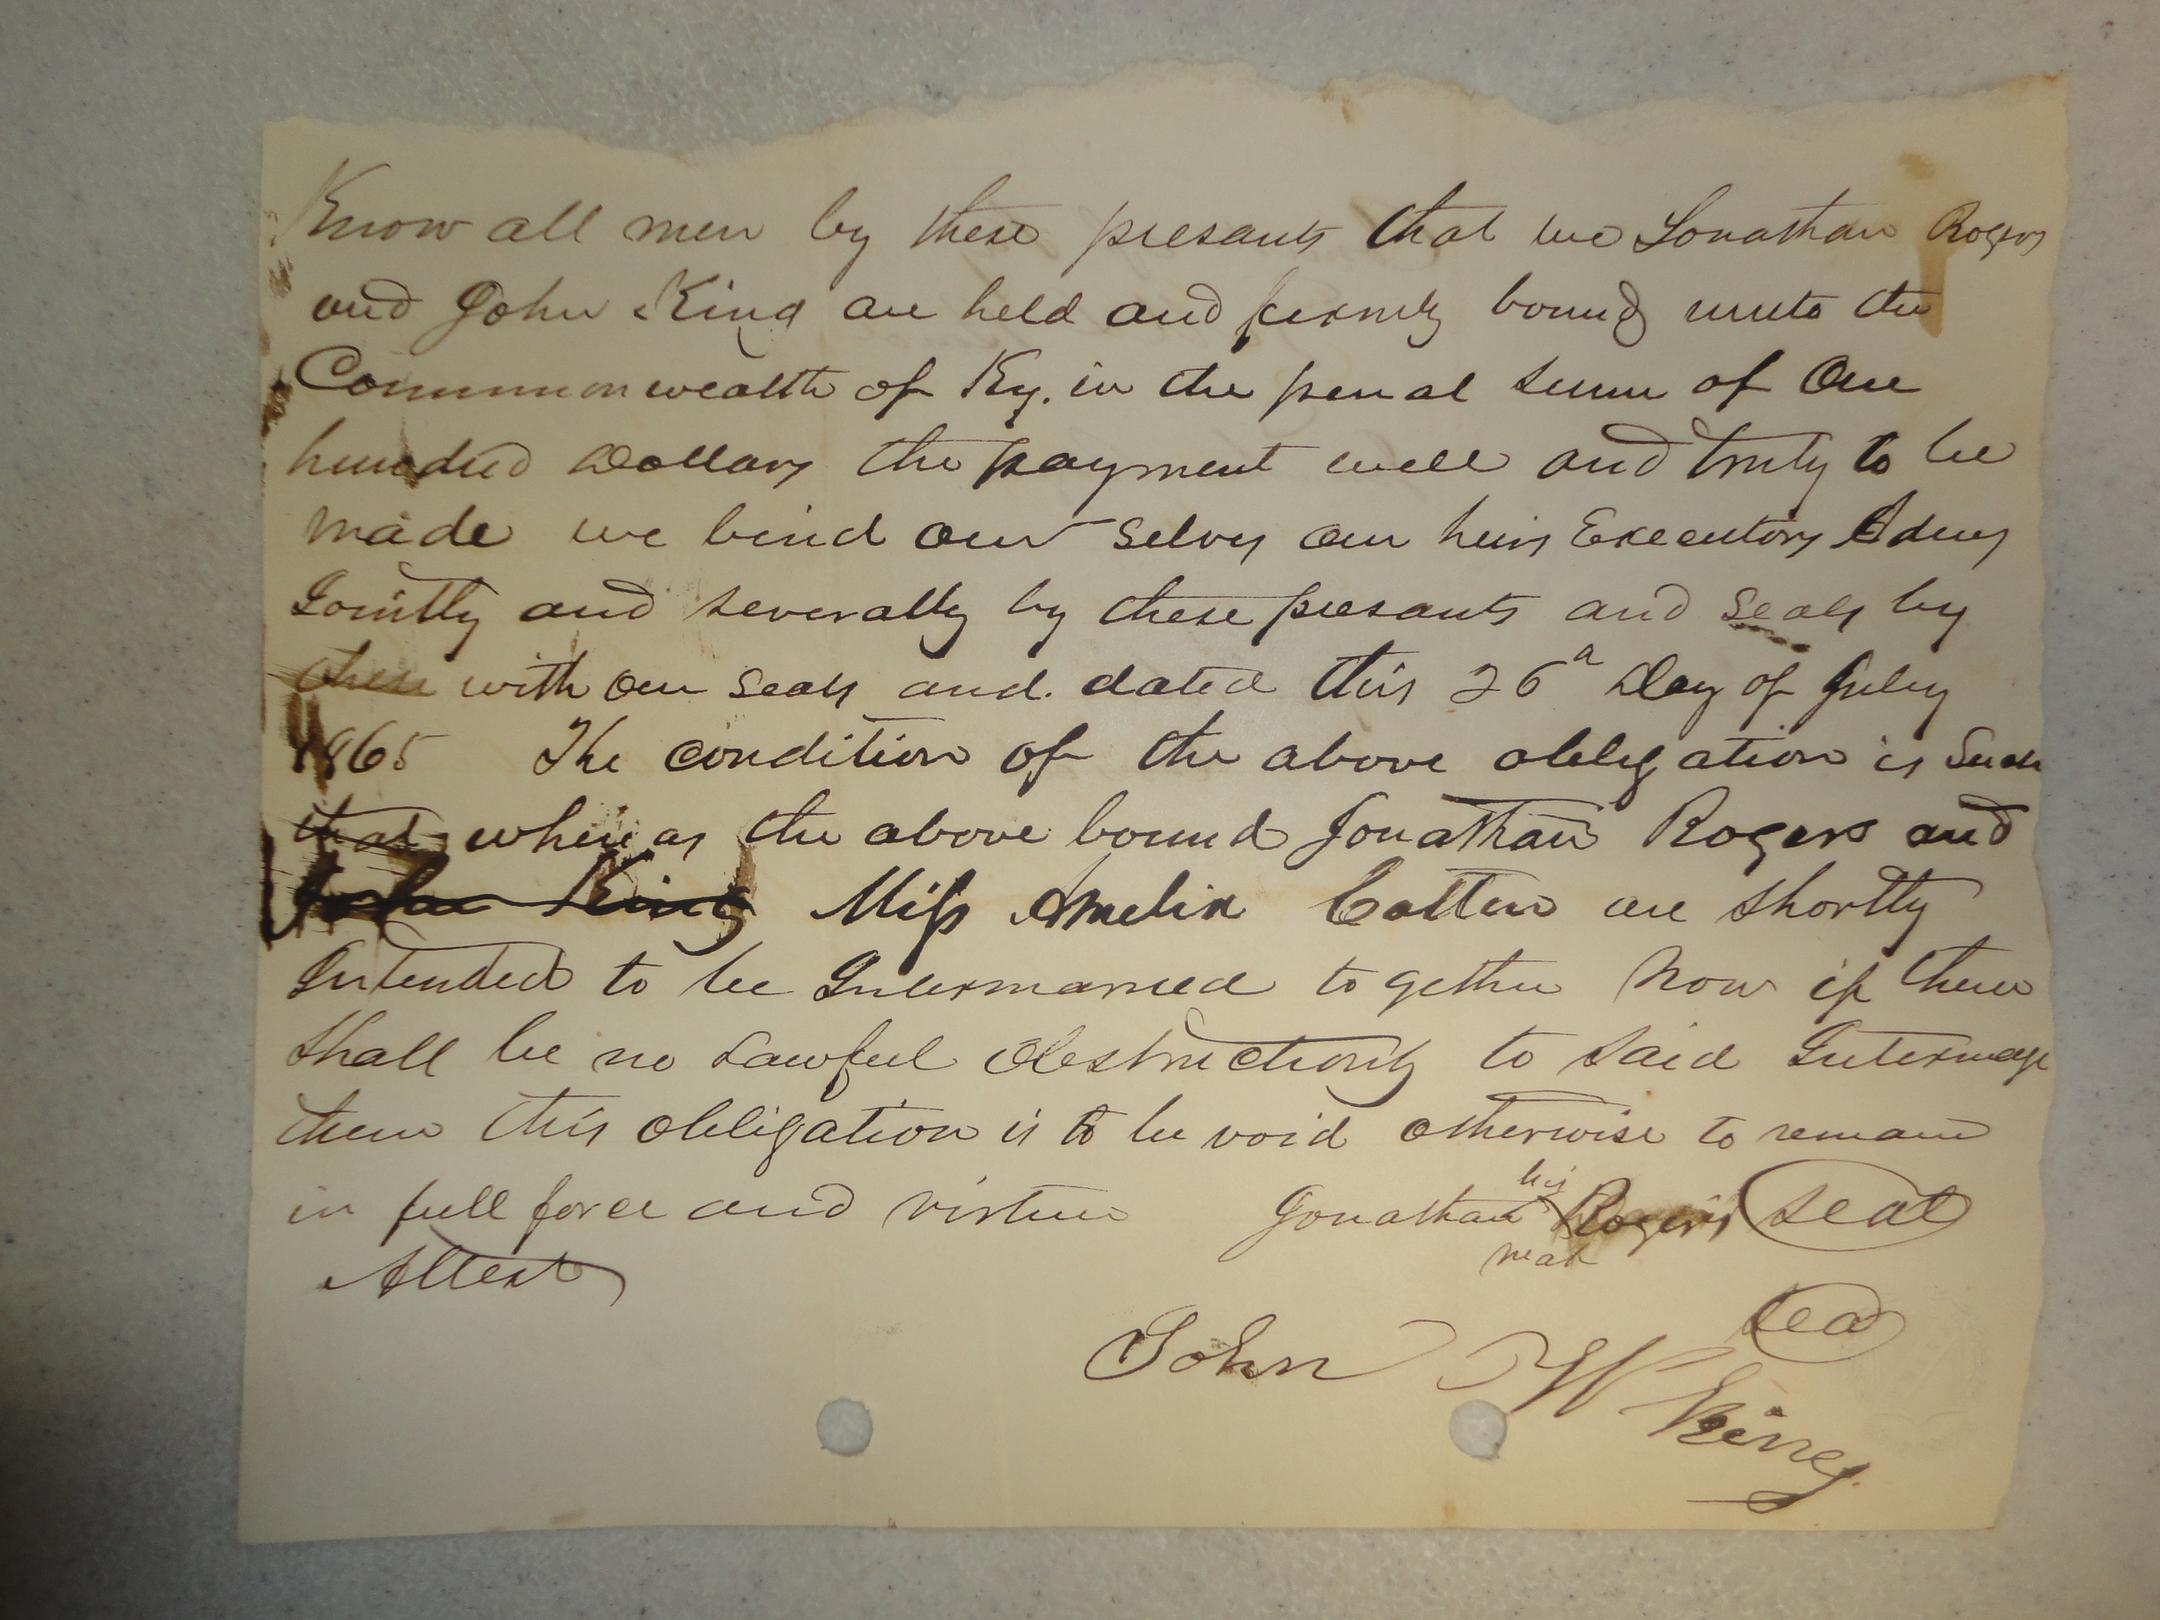 Know all men by these presants that we Jonathan Rogers
and John King are held and firmly bound unto the
Commonwealth of Ky. in the penal sum of One
hundred Dollars the payment well and truly to be
made we bind our selves our heirs Executors Adms
Jointly and severally by these presants and seals by
these with our seals and dated this 26 Day of July
1865 The condition of the above obligation is Such
that whereas the above bound Jonathan Rogers and
John King Miss Amelia Cotten are shortly
Intended to be Intermarried together Now if there
shall be no Lawful obstructions to said Intermage
then this obligation is to be void otherwise to remain
in full force and virtue Jonathan his X Rogers seal
mark
Attest
seal
John W King